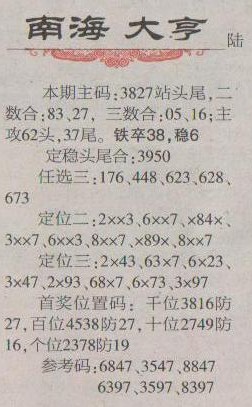 南海 大亨
陆
本期主码:3827站头尾,二
数合:83、27, 三数合:05、16;主
攻62头,37尾。铁卒38,稳6
定稳头尾合:3950
任选三:176、448、623、628、
673
定位二:2××3、6××7、×84×、
3××7、6××3、8××7、×89×、8××7
定位三:2×43、63×7、6×23、
3×47、2×93、68×7、6×73、3×97
首奖位置码: 千位3816防
27,百位4538防27,十位2749防
16,个位2378防19
参考码:6847、3547、8847
6397、3597、8397